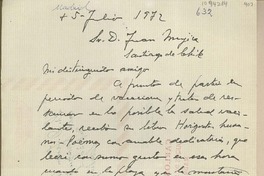 Madrid
5-Julio 1972
632
Sr. D. Juan Mujica
Santiago de Chile
Mi distinguido amigo
A punto de partir en
periodo de vacaciones, y trato de res-
en lo posible la salud
recibo su libro Horizonte
- Poemas con amable dedicatoria, que
leeré con sumo gusto en esas horas
cuando en la playa y en la montaña